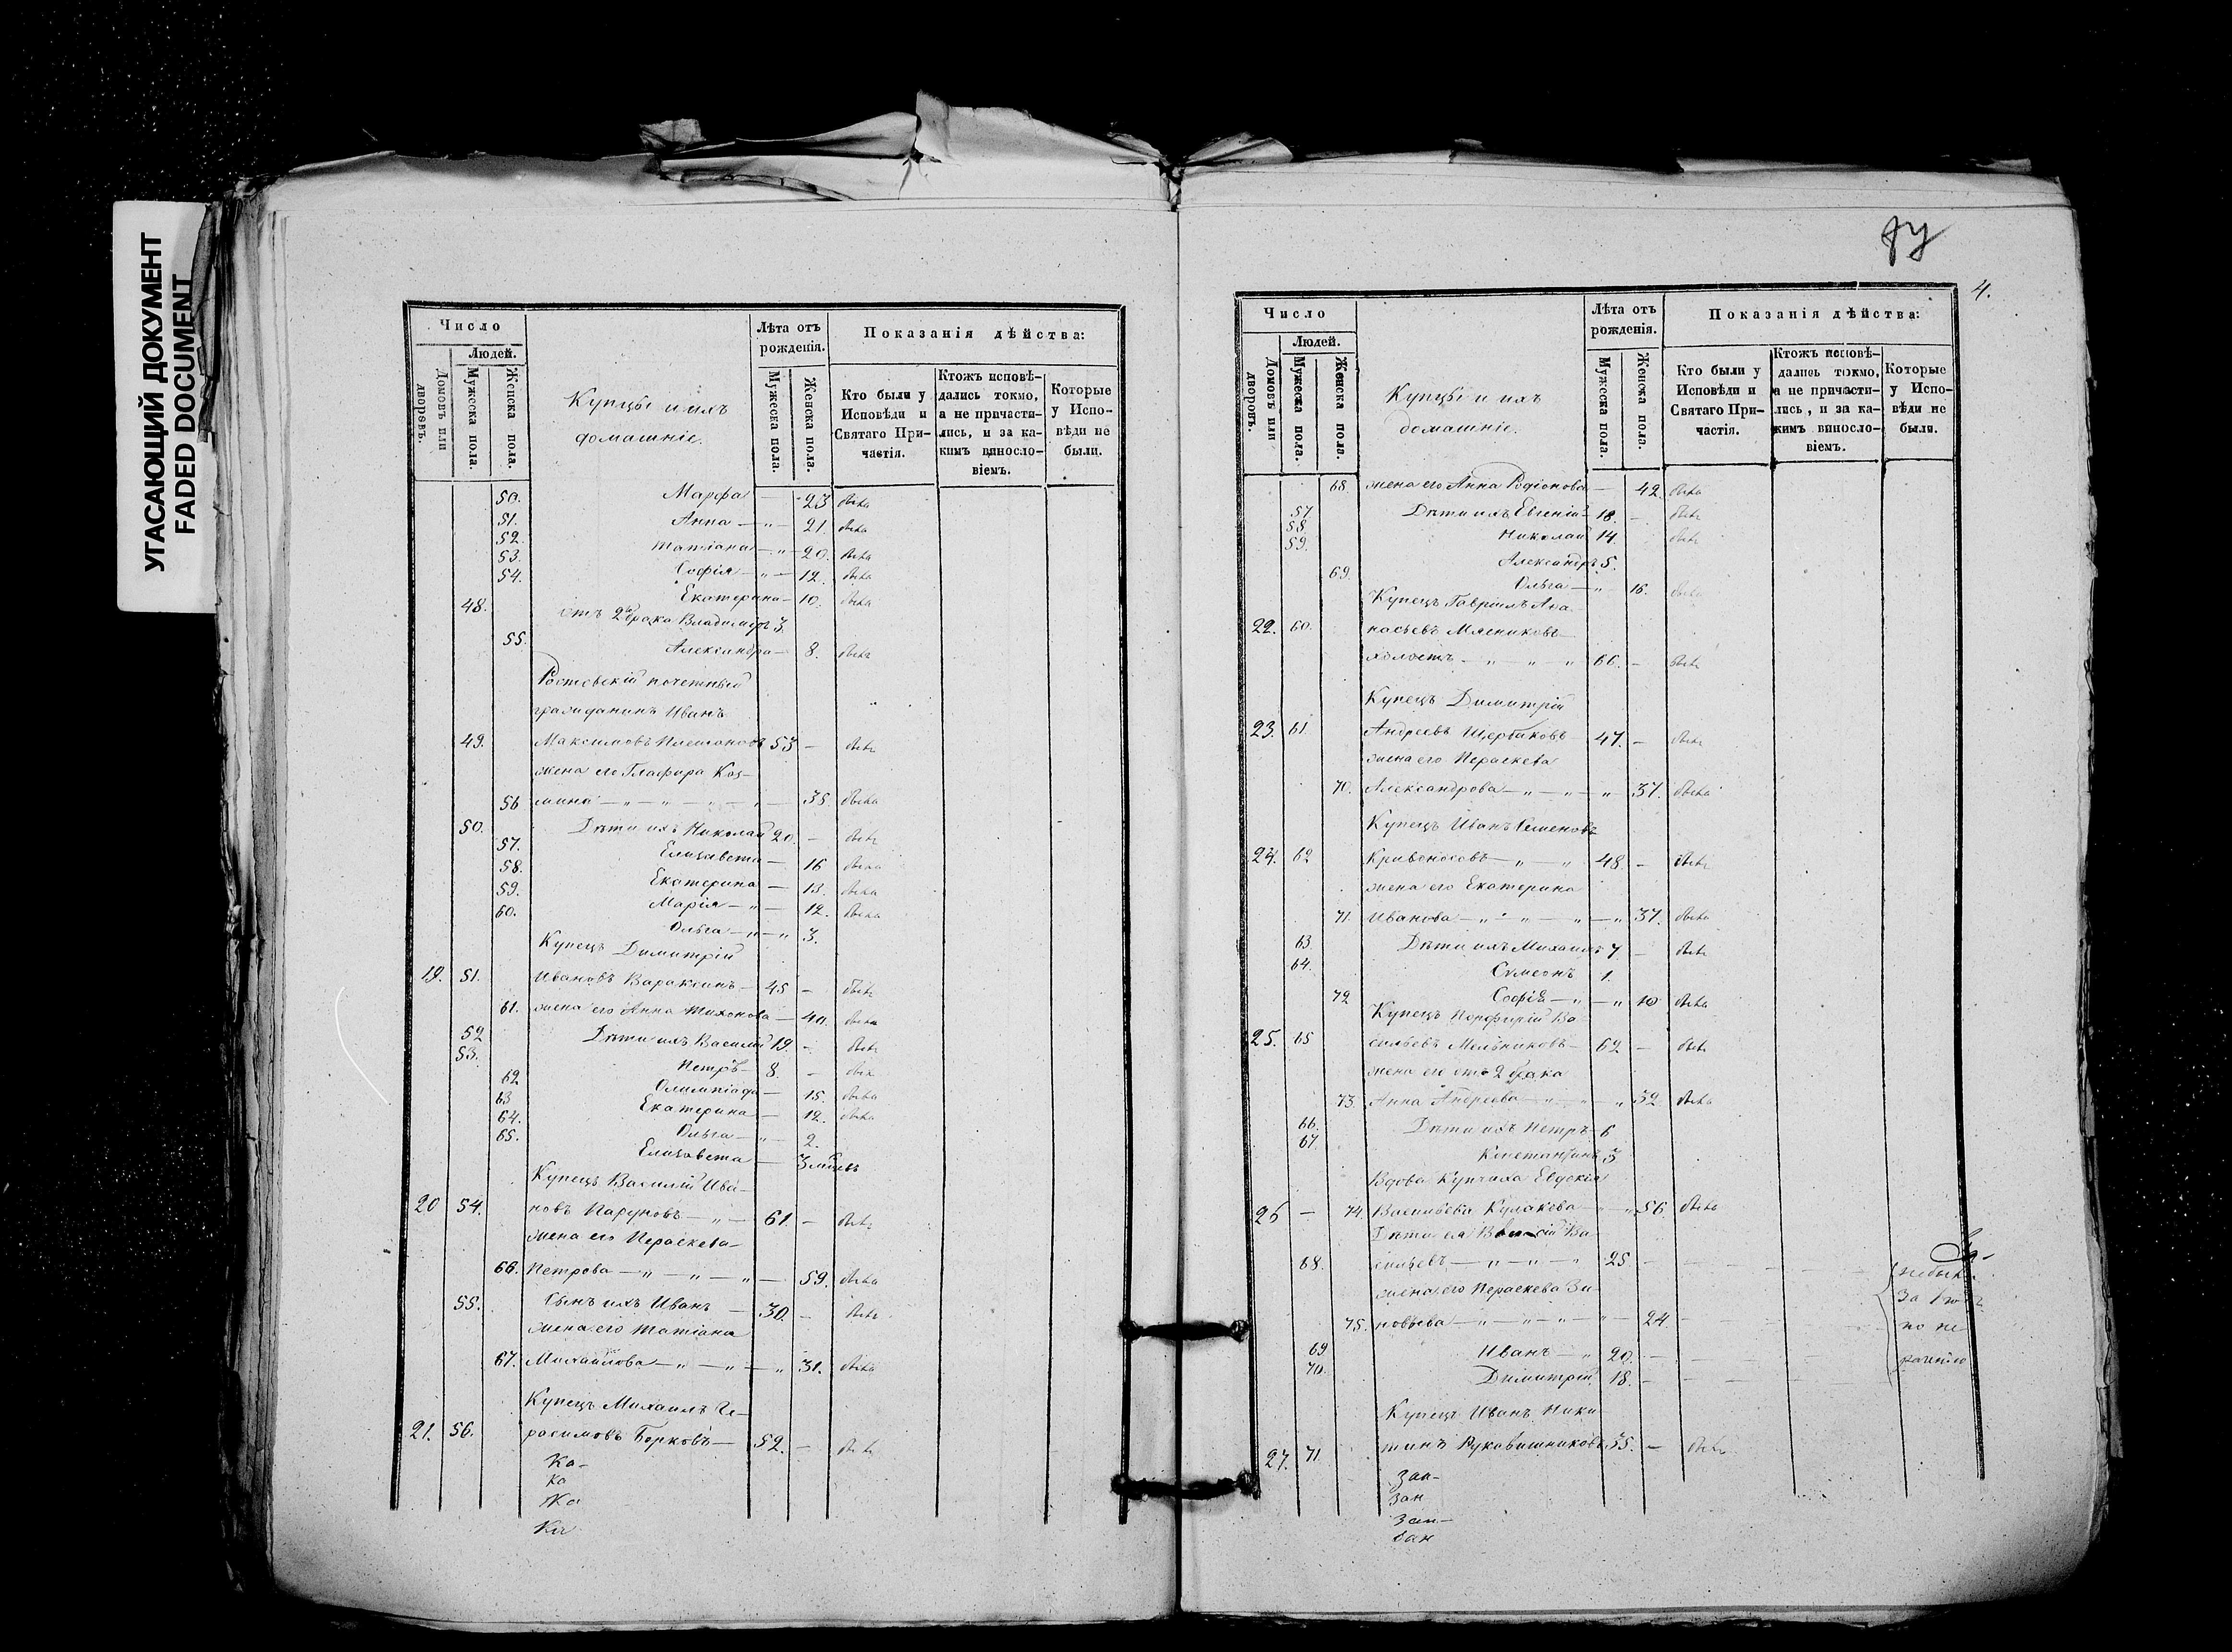 УГАСАЮЩИЙ ДОКУМЕНТ
FADED DOCUMENT
Число
Людей.
Домовъ или дворовъ.
Мужеска пола.
Женска пола.
Купцы и ихъ
домашніе.
Лѣта отъ рожденія.
Мужеска пола.
Женска пола.
Показанія дѣйства:
Кто были у Исповѣди и Святаго Причастія.
Ктожъ исповѣдались токмо, а не причастились, и за какимъ винословіемъ.
Которые у Исповѣди не были.
50. Марфа — 23 была
51. Анна — „ — 21. была
52. Татіана — „ — 20. была
53. Софія — „ — 12. была
54. Екатерина — 10. была
48. отъ 2го брака Владимиръ 3.
55. Александра — 8. была
Ростовскій почетный
гражданинъ Иванъ
49. Максимовъ Плешановъ 53 — бытъ
жена его Глафира Коз-
56 мина — „ — „ — „ — „ — 35. была
50. Дѣти ихъ Николай 20. — бытъ
57. Елизавета — 16 была
58. Екатерина — 13. была
59. Марія — „ — 12. была
60. Ольга — „ — „ 3.
Купецъ Димитрій
19. 51. Ивановъ Вараксинъ — 45 — бытъ
61. жена его Анна Тихонова — 40. была
52 Дѣти ихъ Василій 19. — бытъ
53. Петръ — 8. — бытъ
62 Олимпіада — 15. была
63 Екатерина — 12. была
64. Ольга — „ — 2.
65. Елизавета — 3 мѣсъ
Купецъ Василій Ива-
20 54. новъ Паруновъ — „ — 61. — бытъ
жена его Параскева
66. Петрова — „ — „ — „ — 59. была
55. Сынъ ихъ Иванъ — 30. — бытъ
жена его Татіана
67. Михайлова — „ — „ — „ 31. была
Купецъ Михаилъ Ге-
21. 56. расимовъ Борковъ — 52. — бытъ
Ка-
ка
Ка
4.
Число
Людей.
Домовъ или дворовъ.
Мужеска пола.
Женска пола.
Купцы и ихъ
домашніе.
Лѣта отъ рожденія.
Мужеска пола.
Женска пола.
Показанія дѣйства:
Кто были у Исповѣди и Святаго Причастія.
Ктожъ исповѣдались токмо, а не причастились, и за какимъ винословіемъ.
Которые у Исповѣди не были.
68. жена его Анна Родіонова — 42. была
57 Дѣти ихъ Евгеній — 18. — бытъ
58. Николай 14. бытъ
59. Александръ 5.
69. Ольга — „ 16. была
Купецъ Гавріилъ Ана-
22. 60. насьевъ Мясниковъ
холостъ — „ — „ — „ 66. — бытъ
Купецъ Димитрій
23. 61. Андреевъ Щербаковъ 47. — бытъ
жена его Параскева
70. Александрова — „ — „ — „ 37. была
Купецъ Иванъ Семеновъ
24. 62 Кривоносовъ — „ — „ 48. — бытъ
жена его Екатерина
71. Иванова — „ — „ — „ — „ 37. была
63. Дѣти ихъ Михаилъ 7. — бытъ
64. Сѵмеонъ 1.
72 Софія — „ — „ 10 была
Купецъ Порфирій Ва-
25. 65 сильевъ Мельниковъ — 62 — бытъ
жена его отъ 2 брака
73. Анна Андреева — „ — „ — „ 32. была
66. Дѣти ихъ Петръ — 6
67. Константинъ 3
Вдова Купчиха Евдокія
26 — 74. Васильева Кулакова — „ — „ 56. была
Дѣти ея Василій Ва-
68. сильевъ — „ — „ — „ 25 —
жена его Параскева Зи-
75. новьева — „ — „ — „ — „ — 24
69 Иванъ — „ 20. —
70. Димитрій 18. —
небыли
за
по не
раченію
Купецъ Иванъ Ники
27. 71 тинъ Рукавишниковъ 35. — бытъ
зан-
зан
зан-
зан